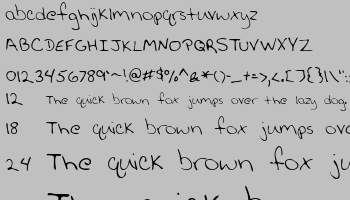 abcdefghijklmnopqrstuvwxyz
ABCDEFGHIJKLMNOPQRSTUVWXYZ
0123456789~!@#$%^&*()-_+=>,<.[]{}|\":
12 The quick brown fox jumps over the lazy dog.
18 The quick brown fox jumps
24 The quick brown fox